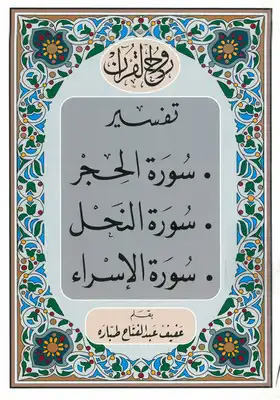 روح القرآن
تفسير
• سورة الحجر
• سورة النحل
• سورة الإسراء
بقلم
عفيف عبد الفتاح طباره